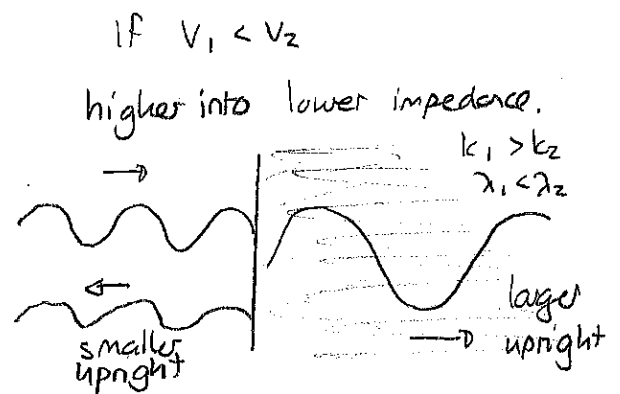 If V₁ < V₂
higher into lower impedance.
k₁ > k₂
λ₁ < λ₂
smaller
upright
larger
upright